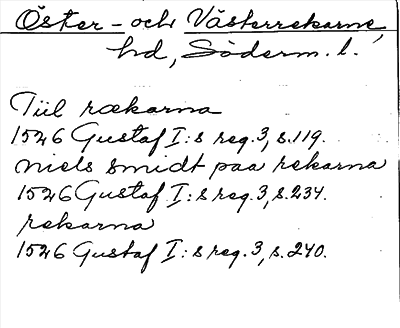 Öster- och Västerrekarne
hd, Söderm. l.
Tiil rækarna
1526 Gustaf I:s reg. 3, s. 119.
niels smidt paa rekarna
1526 Gustaf I:s reg. 3, s. 234.
rekarna
1526 Gustaf I:s reg. 3, s. 240.